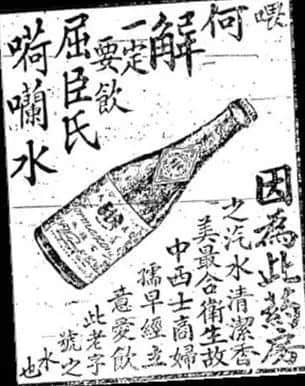 喂
何
解
一定
要飲
屈臣氏
嗬囒水
因為此葯房
之汽水清潔香
美最合衛生故
中西士商婦
孺早經立
意愛飲
此老字
號之
水
也